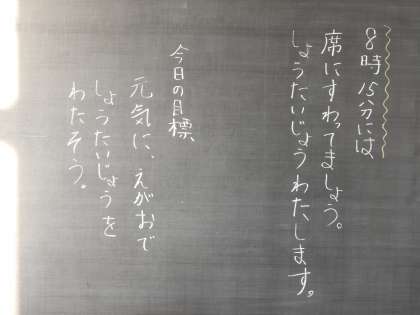 8時15分には
席にすわってましょう。
しょうたいじょうわたします。
今日の目標、
元気に、えがおで
しょうたいじょうを
わたそう。